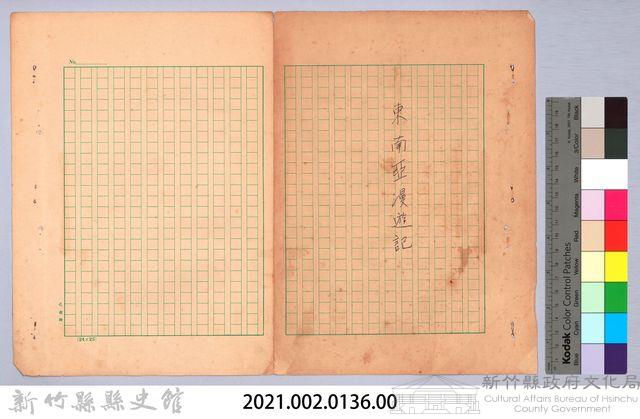 No.
東南亞漫遊記
(24×25)
Black
3/Color
White
Magenta
Red
Yellow
Green
Cyan
Blue
Kodak Color Control Patches
新竹縣縣史館
2021.002.0136.00
新竹縣政府文化局
Cultural Affairs Bureau of Hsinchu
County Government